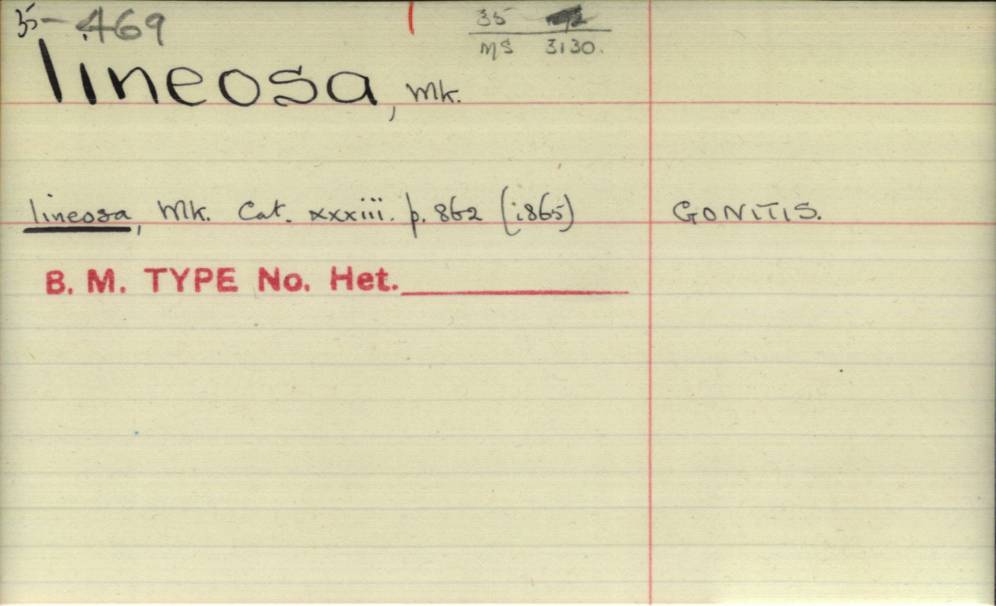 35-469
35
MS 3130.
lineosa, Mk.
lineosa, Mk. Cat. xxxiii. p. 862 (1865) GONITIS.
B. M. TYPE No. Het.